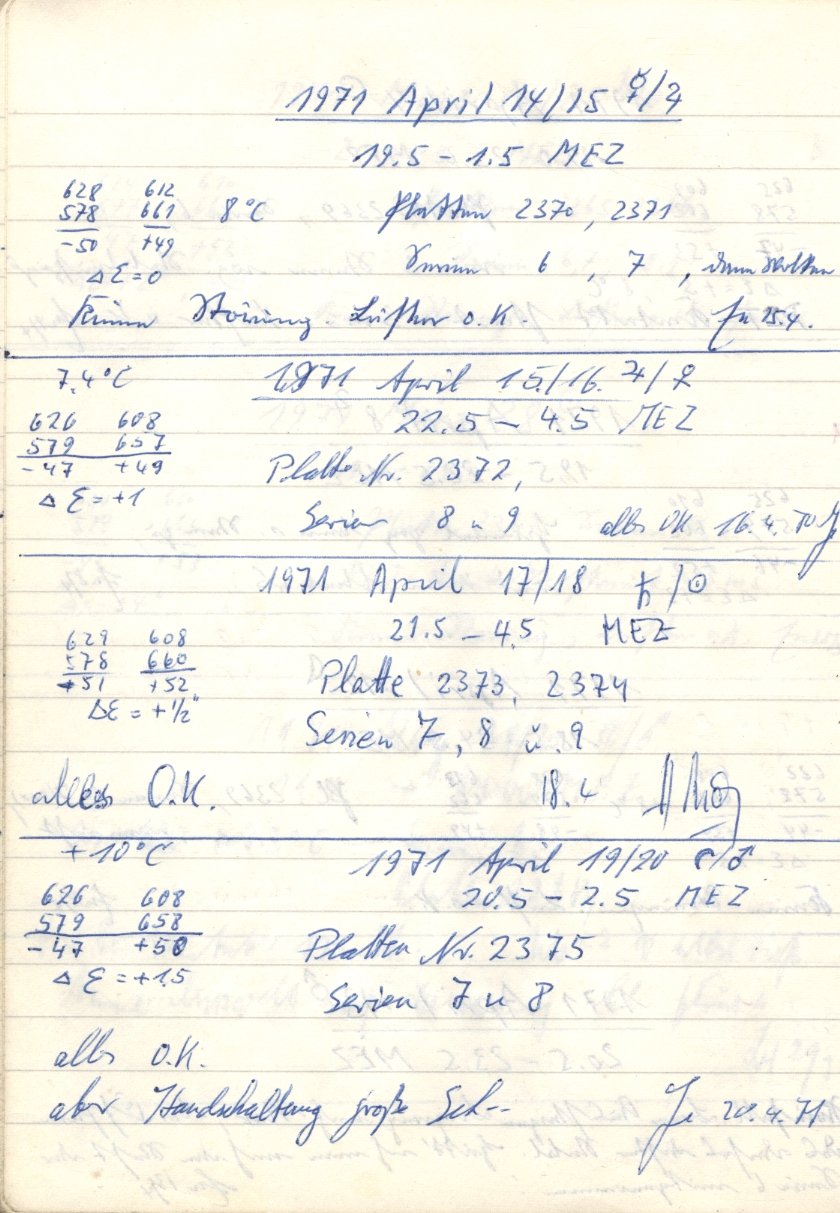 1971 April 14/15 ☿/♃
19.5 – 1.5 MEZ
628 612
578 661 8°C Platten 2370, 2371
-50 +49
Serien 6, 7, dann Wolken
Δε = 0
Keine Störung. Lüfter o.K. 15.4.
7.4°C 1971 April 15./16. ♃/♀
22.5 – 4.5 MEZ
626 608
579 657
-47 +49 Platte Nr. 2372,
Δε = +1
Serien 8 u 9 alles OK 16.4.
1971 April 17/18 ♄/☉
21.5 – 4.5 MEZ
629 608
578 660
+51 +52 Platte 2373, 2374
Δε = +½"
Serien 7, 8 u. 9
alles O.K. 18.4
+10°C 1971 April 19/20 ☾/♂
20.5 – 2.5 MEZ
626 608
579 658
-47 +50 Platten Nr. 2375
Δε = +1.5
Serien 7 u 8
alles O.K.
aber Handschaltung große 20.4.71